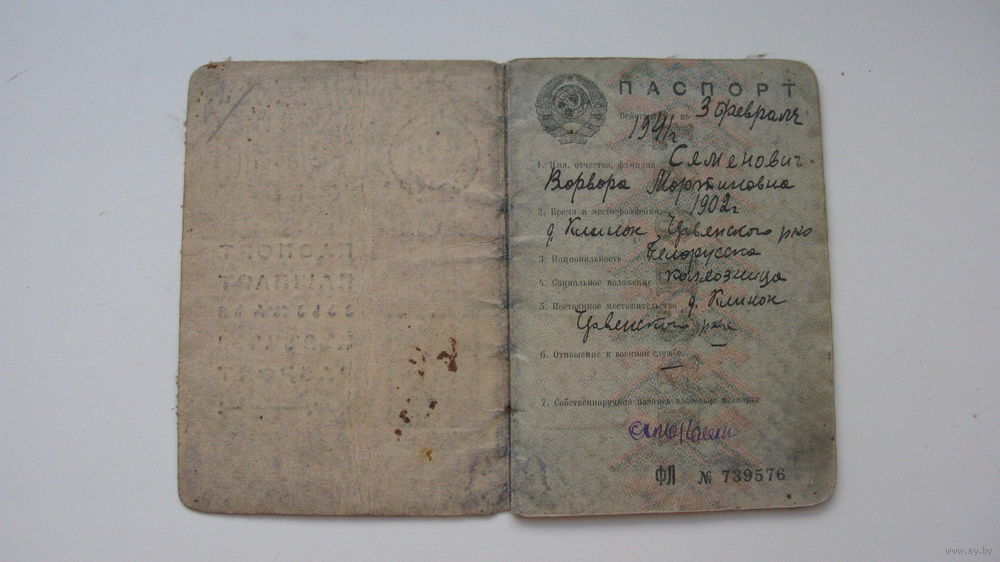 ПАСПОРТ
3 февраля
1941г
1. Имя, отчество, фамилия Семенович
Ворвора Мортиновна
2. Время и место рождения 1902г
д. Клинок, Червенского р-на
3. Национальность Белорусска
4. Социальное положение колхозница
5. Постоянное местожительство д. Клинок
Червенского р-на
6. Отношение к военной службе —
7. Собственноручная подпись владельца паспорта
ФЛ № 739576
www.ay.by